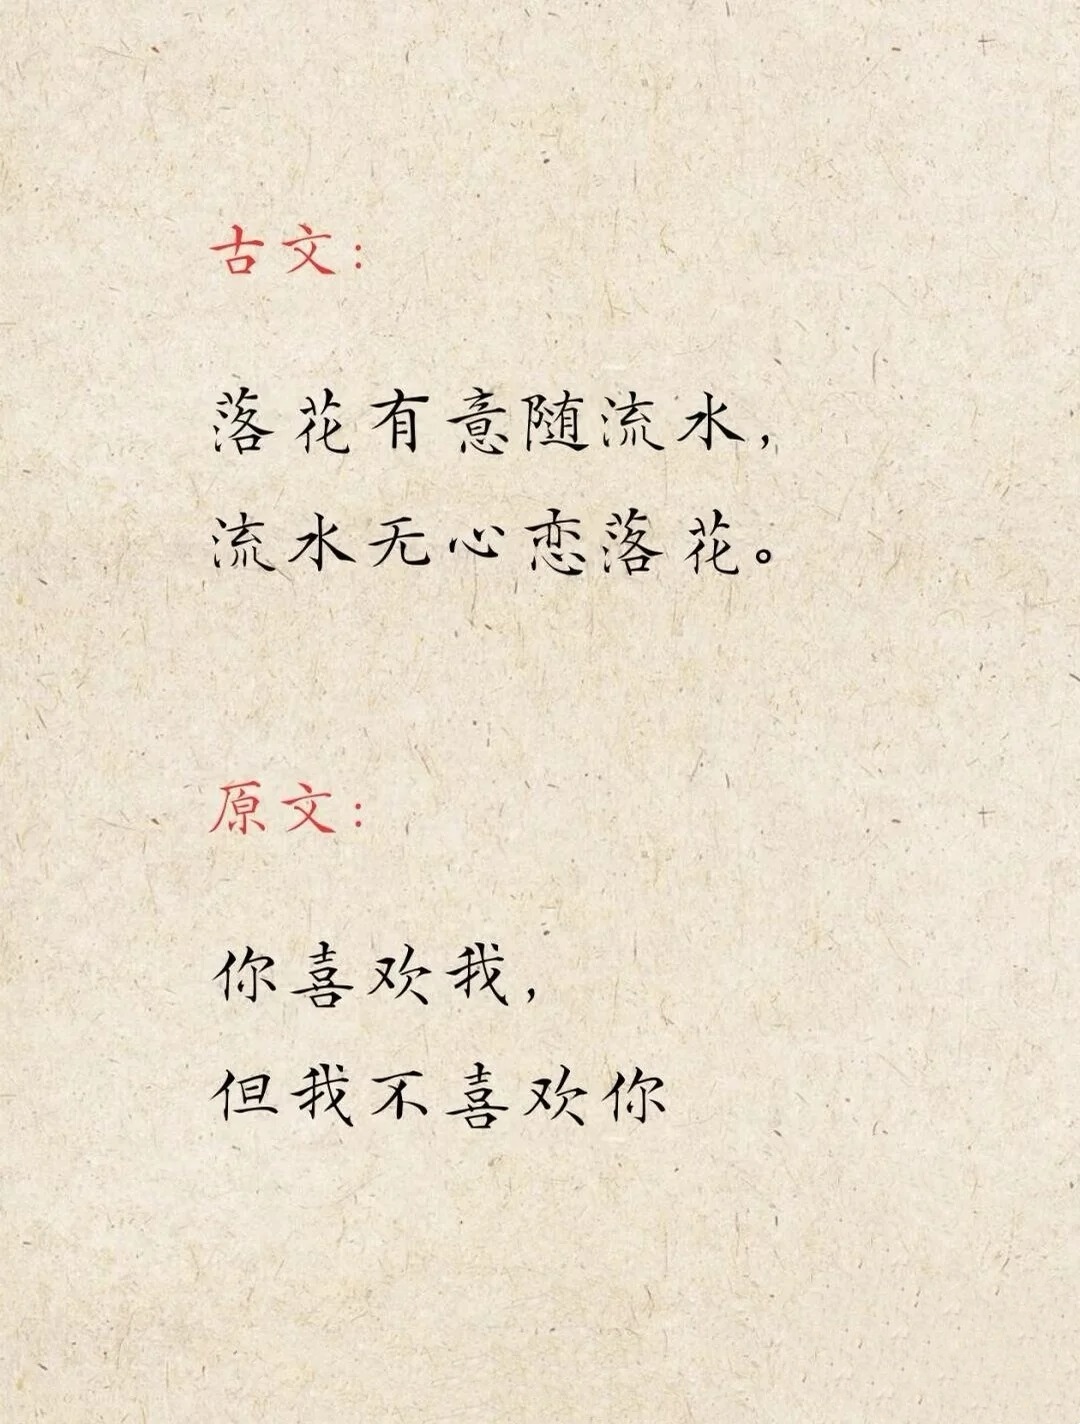 古文：
落花有意随流水，
流水无心恋落花。
原文：
你喜欢我，
但我不喜欢你